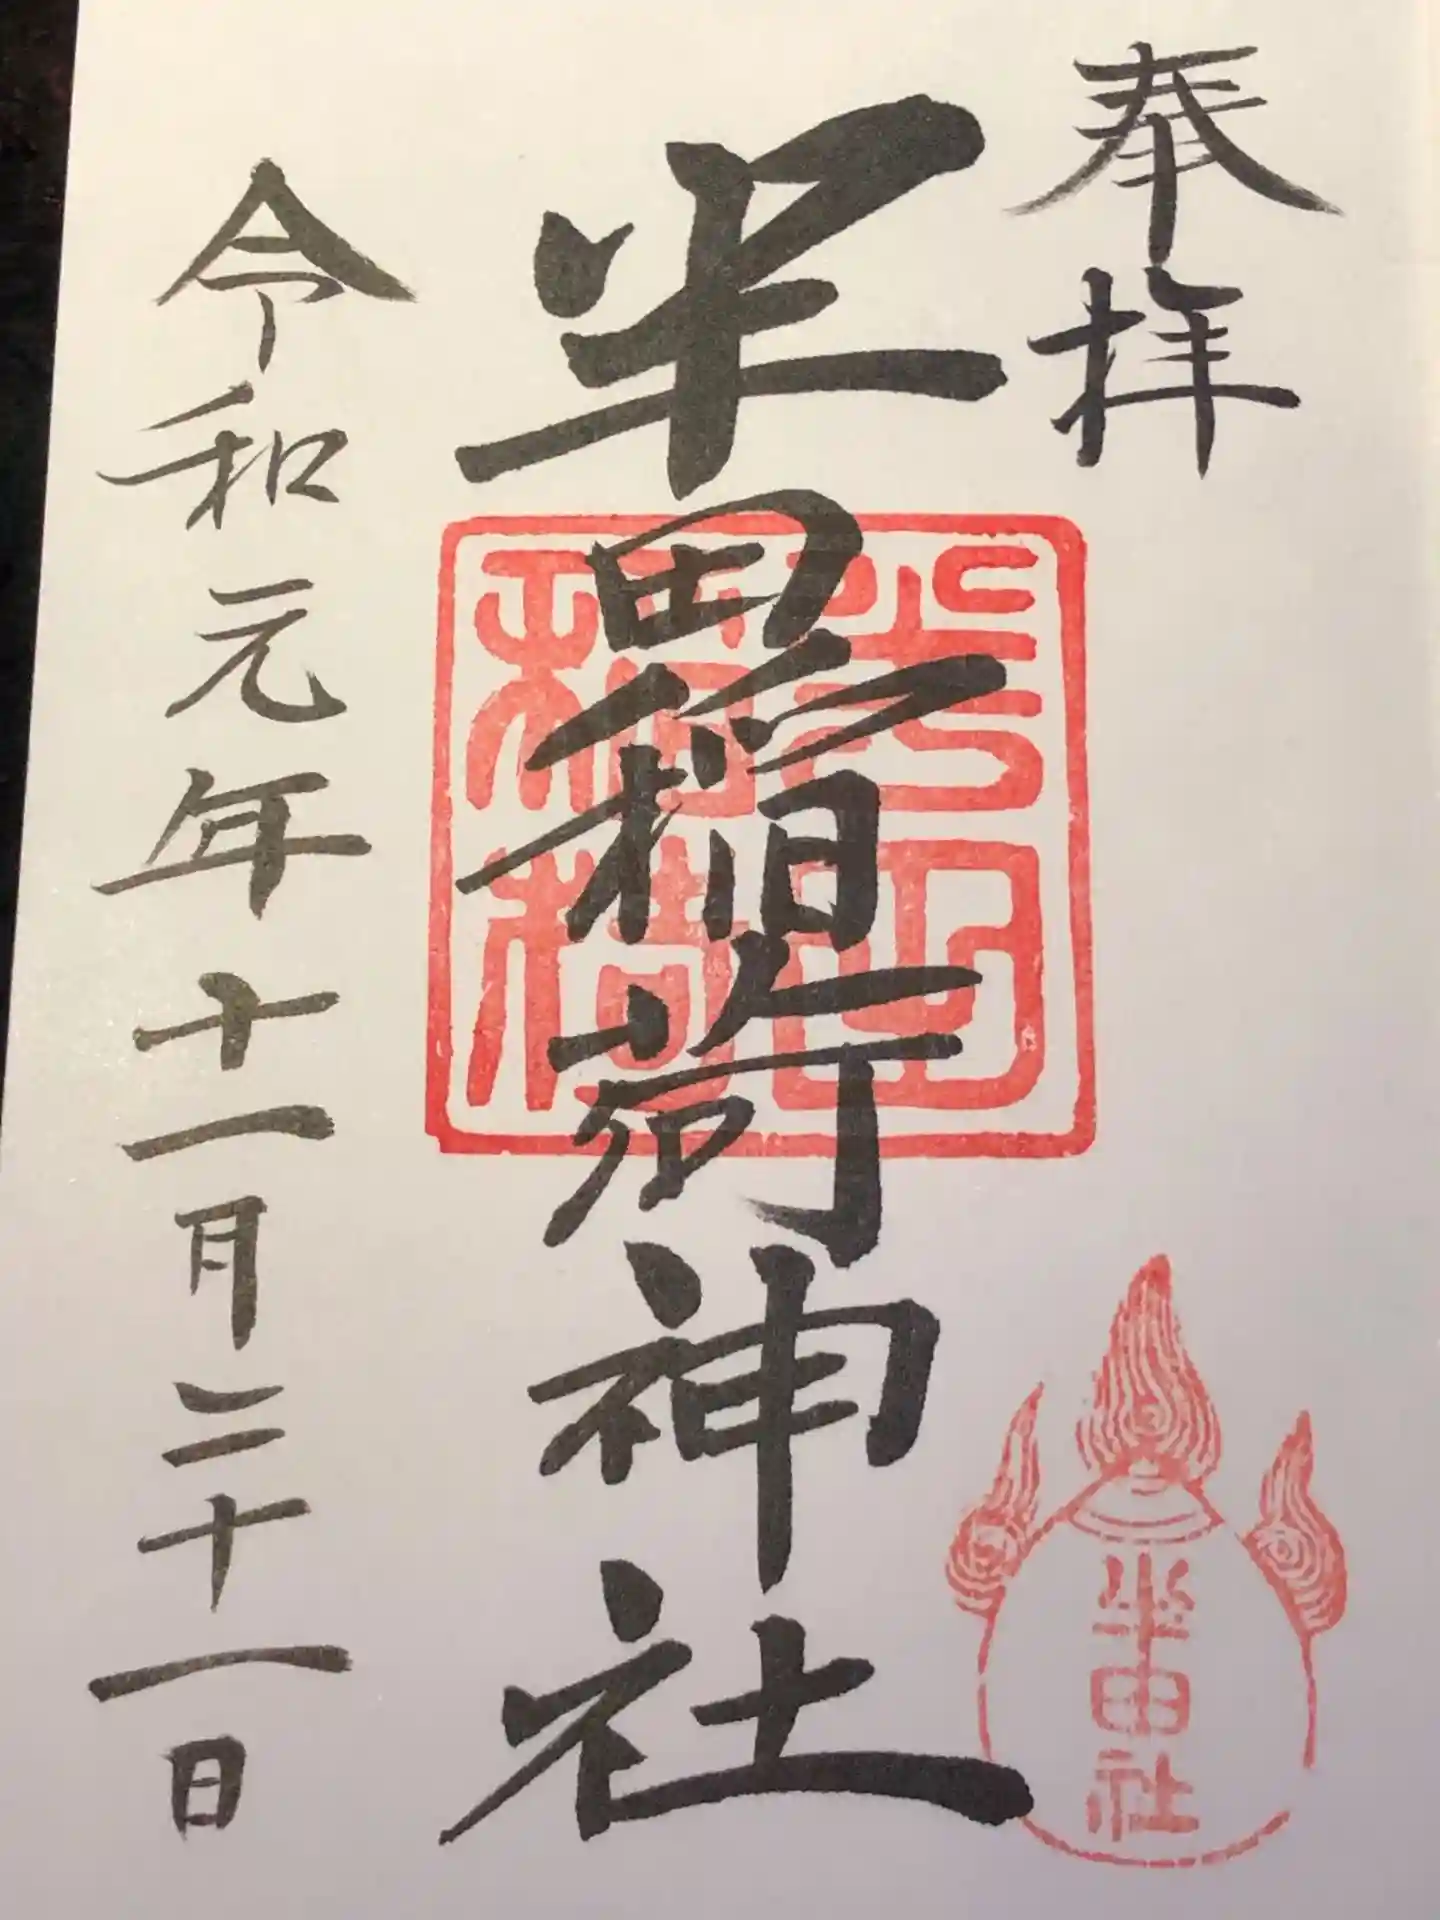 奉拝
半田稲荷神社
半田稲荷
令和元年十一月二十一日
半田社